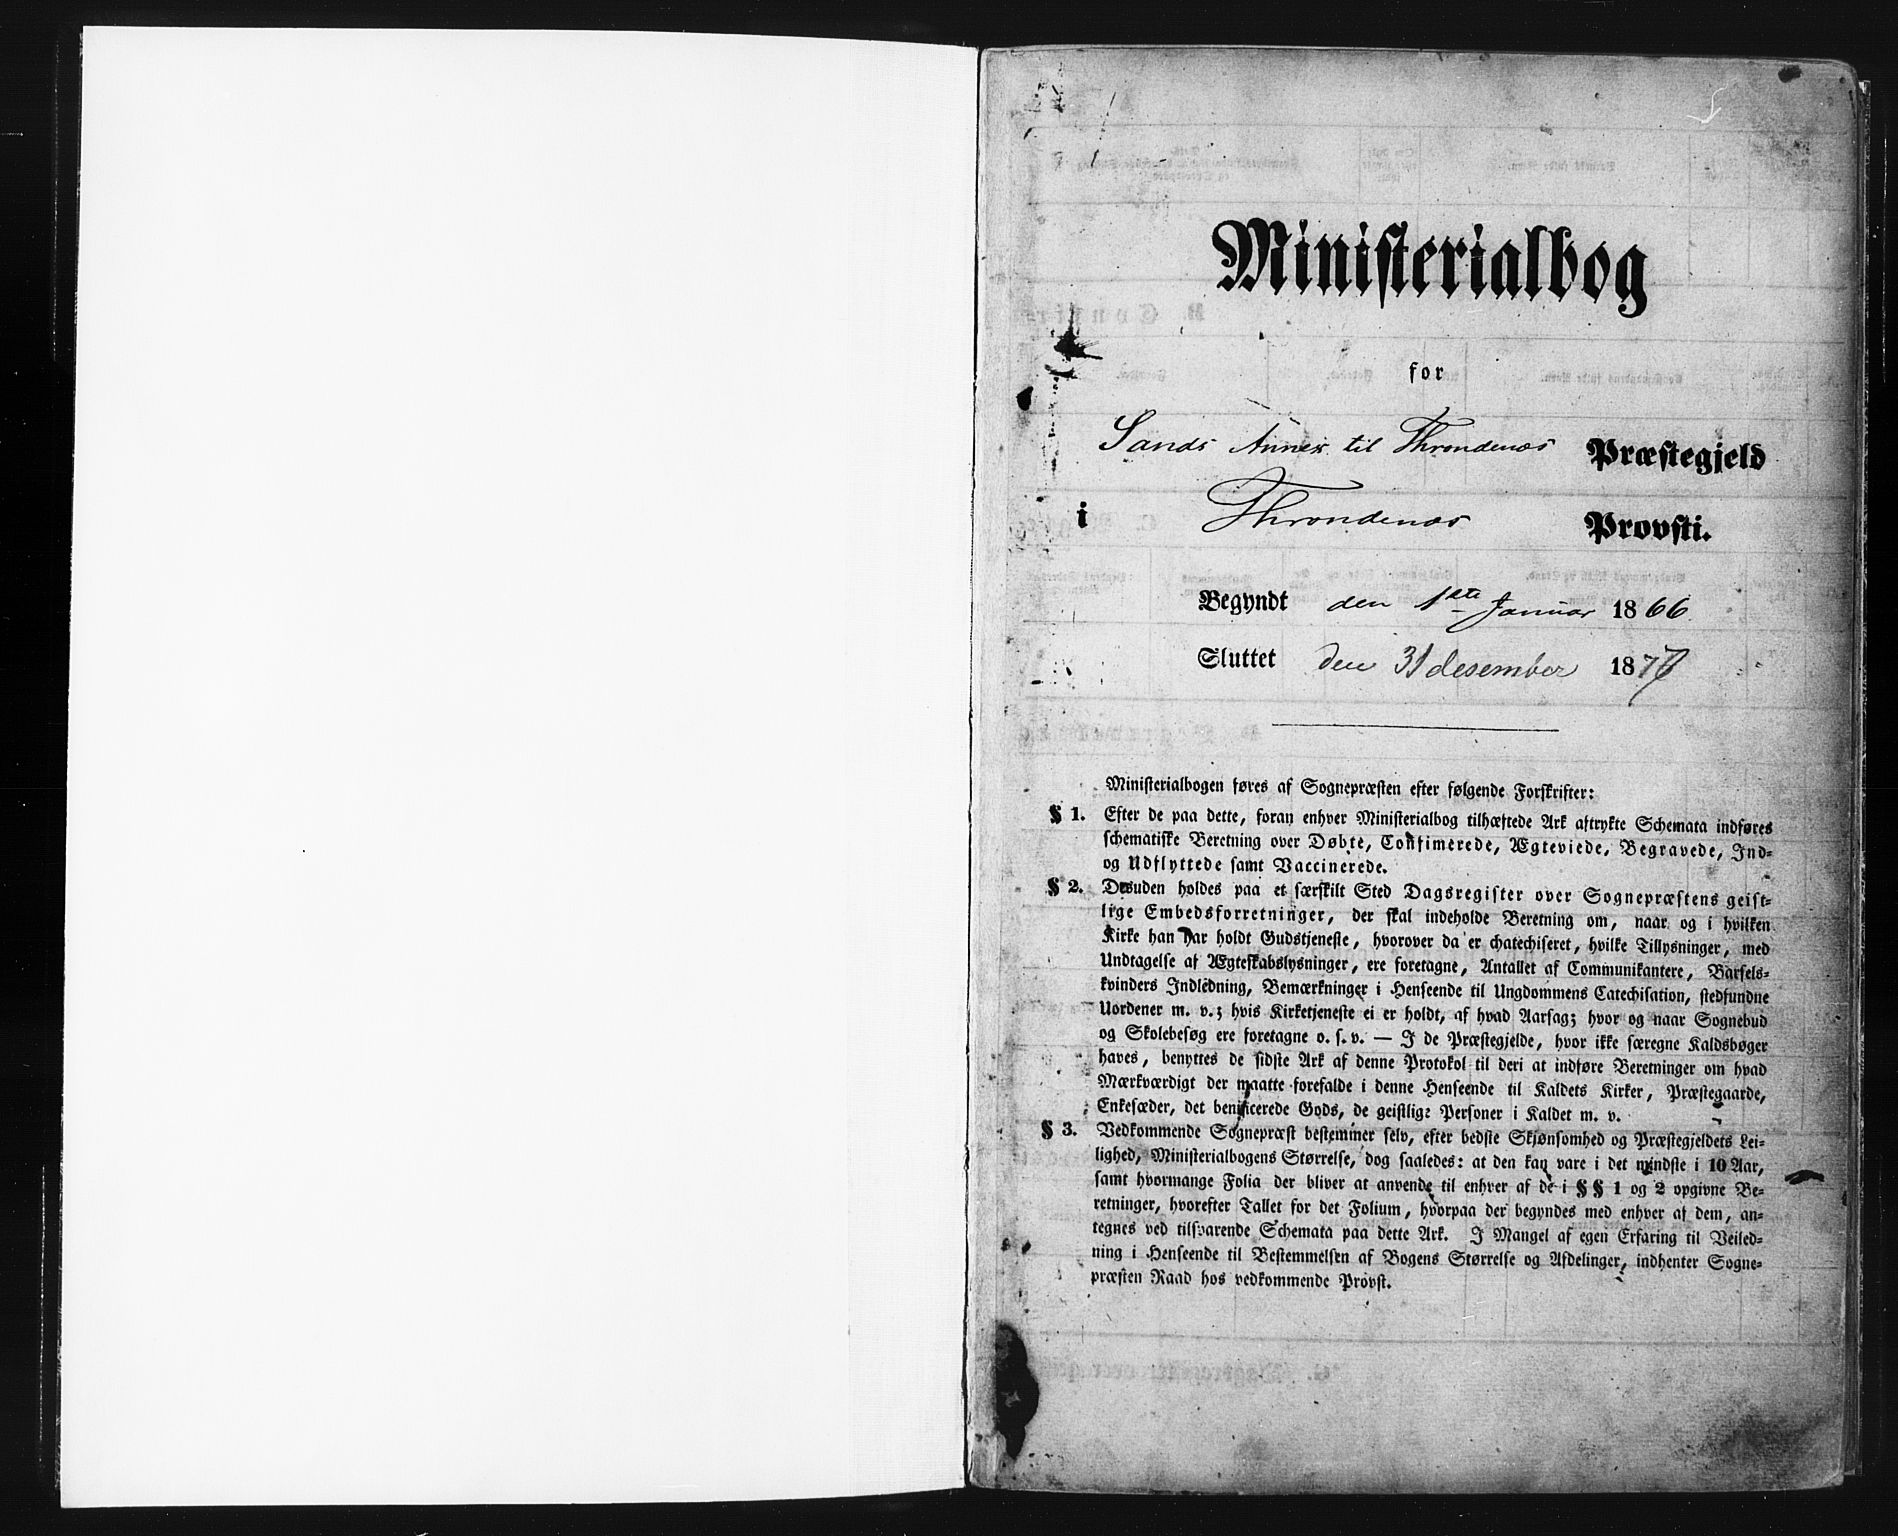 Ministerialbog
for
Sands Annex til Throndenæs Præstegjeld
i Throndenæs Provsti.
Begyndt den 1ste Januar 1866.
Sluttet den 31 desember 187
Ministerialbogen føres af Sognepræsten efter følgende Forskrifter:
§ 1. Efter de paa dette, foran enhver Ministerialbog tilhæftede Ark aftrykte Schemata indføres
schematiske Beretning over Døbte, Confimerede, Ægteviede, Begravede, Ind-
og Udflyttede samt Vaccinerede.
§ 2. Desuden holdes paa et særskilt Sted Dagsregister over Sognepræstens geist-
lige Embedsforretninger, der skal indeholde Beretning om, naar og i hvilken
Kirke han har holdt Gudstjeneste, hvorover da er chatechiseret, hvilke Tillysninger, med
Undtagelse af Ægteskabslysninger, ere foretagne, Antallet af Communikantere, Barsels-
kvinders Indledning, Bemærkninger i Henseende til Ungdommens Catechisation, stedfundne
Uordener m. v.; hvis Kirketjeneste ei er holdt, af hvad Aarsag; hvor og naar Sognebud
og Skolebesøg ere foretagne o. s. v. — I de Præstegjelde, hvor ikke særegne Kaldsbøger
haves, benyttes de sidste Ark af denne Protokol til deri at indføre Beretninger om hvad
Mærkværdigt der maatte forefalde i denne Henseende til Kaldets Kirker, Præstegaarde,
Enkesæder, det beneficerede Gods, de geistlige Personer i Kaldet m. v.
§ 3. Vedkommende Sognepræst bestemmer selv, efter bedste Skjønsomhed og Præstegjeldets Lei-
lighed, Ministerialbogens Størrelse, dog saaledes: at den kan vare i det mindste i 10 Aar,
samt hvormange Folia der bliver at anvende til enhver af de i § § 1 og 2 opgivne Be-
retninger, hvorefter Tallet for det Folium, hvorpaa der begyndes med enhver af dem, an-
tegnes ved tilsvarende Schemata paa dette Ark. I Mangel af egen Erfaring til Veiled-
ning i Henseende til Bestemmelsen af Bogens Størrelse og Afdelinger, indhenter Sogne-
præsten Raad hos vedkommende Provst.